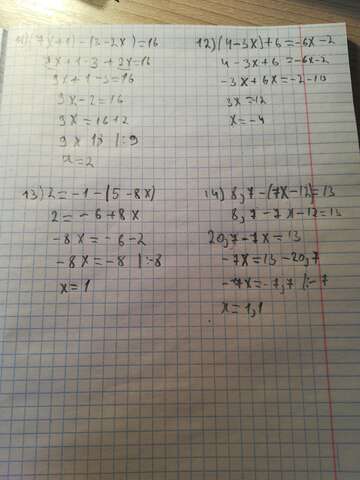 11) (7x+1)-(3-2x)=16
7x+1-3+2x=16
9x+1-3=16
9x-2=16
9x=16+2
9x 18 |:9
x=2
12) (4-3x)+6=-6x-2
4-3x+6=-6x-2
-3x+6x=-2-10
3x=12
x=-4
13) 2=-1-(5-8x)
2=-6+8x
-8x=-6-2
-8x=-8 |:-8
x=1
14) 8,7-(7x-12)=13
8,7-7x-12=13
20,7-7x=13
-7x=13-20,7
-7x=-7,7 |:-7
x=1,1